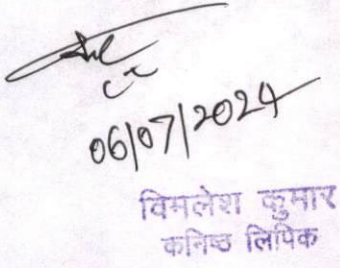 06/07/2024
विमलेश कुमार
कनिष्ठ लिपिक